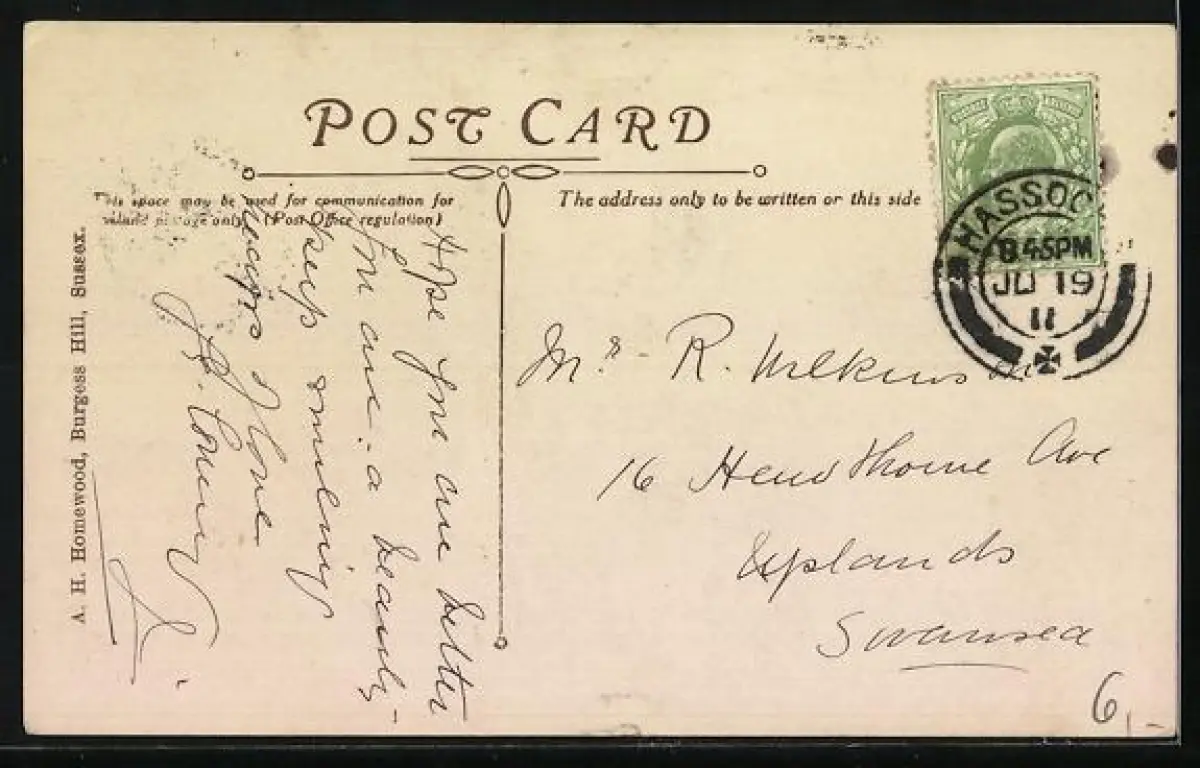 POST CARD
This space may be used for communication for
inland postage only. (Post Office regulation)
The address only to be written on this side
HASSOC
8.45PM
JU 19
11
A. H. Homewood, Burgess Hill, Sussex.
Hope you are better
You are a beauty
Keep smiling
love
Mrs R. Wilkinson
16 Hawthorne Ave
Uplands
Swansea
6,-